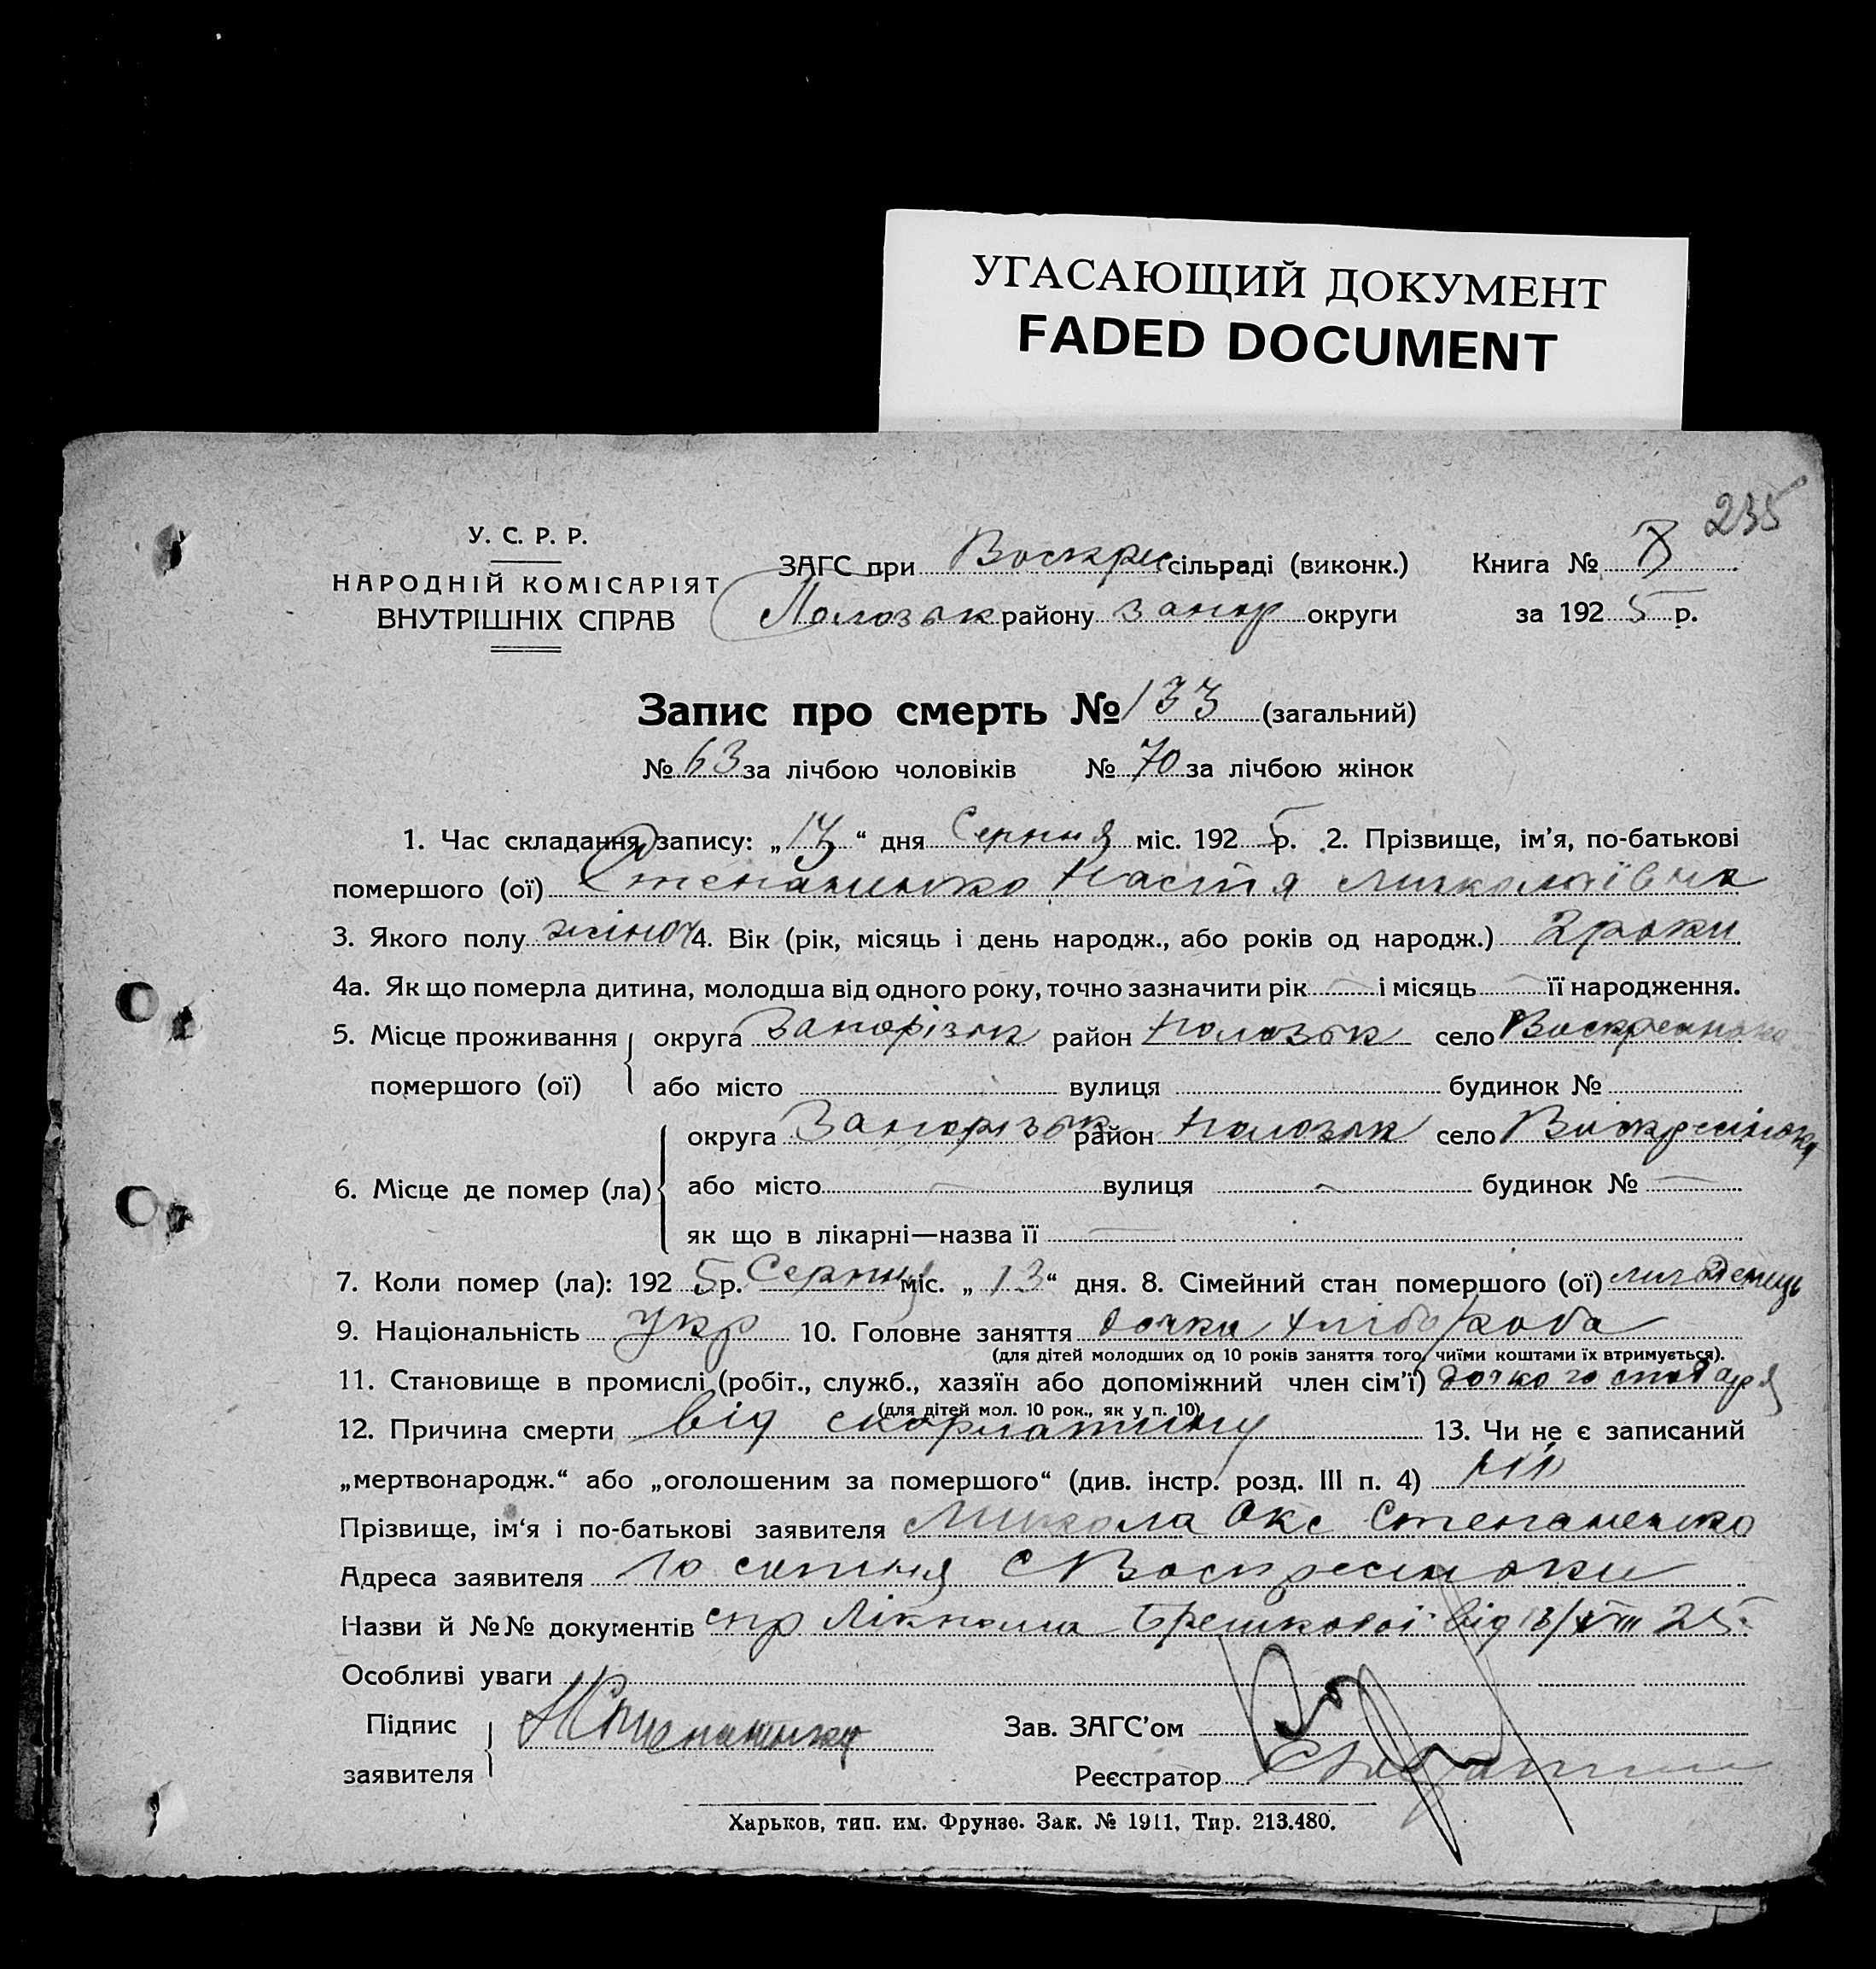 УГАСАЮЩИЙ ДОКУМЕНТ
FADED DOCUMENT
235
У. С. Р. Р.
НАРОДНІЙ КОМІСАРІЯТ
ВНУТРІШНІХ СПРАВ
ЗАГС при Воскрес сільраді (виконк.) Книга №
Пологзьк району Запор округи за 1925 р.
Запис про смерть № 133 (загальний)
№ 63 за лічбою чоловіків № 70 за лічбою жінок
1. Час складання запису: „ “ дня Серпня міс. 1925 р. 2. Прізвище, ім’я, по-батькові
помершого (ої) Степаненко Настя Миколаївна
3. Якого полу жіноч 4. Вік (рік, місяць і день народж., або років од народж.) 2 роки
4а. Як що померла дитина, молодша від одного року, точно зазначити рік — і місяць — її народження.
5. Місце проживання помершого (ої) округа Запорізьк район Пологзьк село Воскресенка
або місто вулиця будинок №
6. Місце де помер (ла) округа Запорізьк район Пологзьк село Воскресінка
або місто — вулиця — будинок № —
як що в лікарні—назва її —
7. Коли помер (ла): 1925 р. Серпня міс. „13“ дня. 8. Сімейний стан помершого (ої)
9. Національність укр 10. Головне заняття дочка хлібороба
(для дітей молодших од 10 років заняття того, чиїми коштами їх втримується).
11. Становище в промислі (робіт., служб., хазяїн або допоміжний член сім’ї) дочка господаря
(для дітей мол. 10 рок., як у п. 10)
12. Причина смерти від скорлатину 13. Чи не є записаний
„мертвонародж.“ або „оголошеним за помершого“ (див. інстр. розд. III п. 4) ні
Прізвище, ім‘я і по-батькові заявителя Микола Окс Степаненко
Адреса заявителя 10 сотня с Воскресінки
Назви й №№ документів спр Лікпома Брешкової від 13/VIII 25
Особливі уваги
Підпис заявителя Н Степаненко
Зав. ЗАГС’ом
Реєстратор
Харьков, тип. им. Фрунзе. Зак. № 1911. Тир. 213.480.